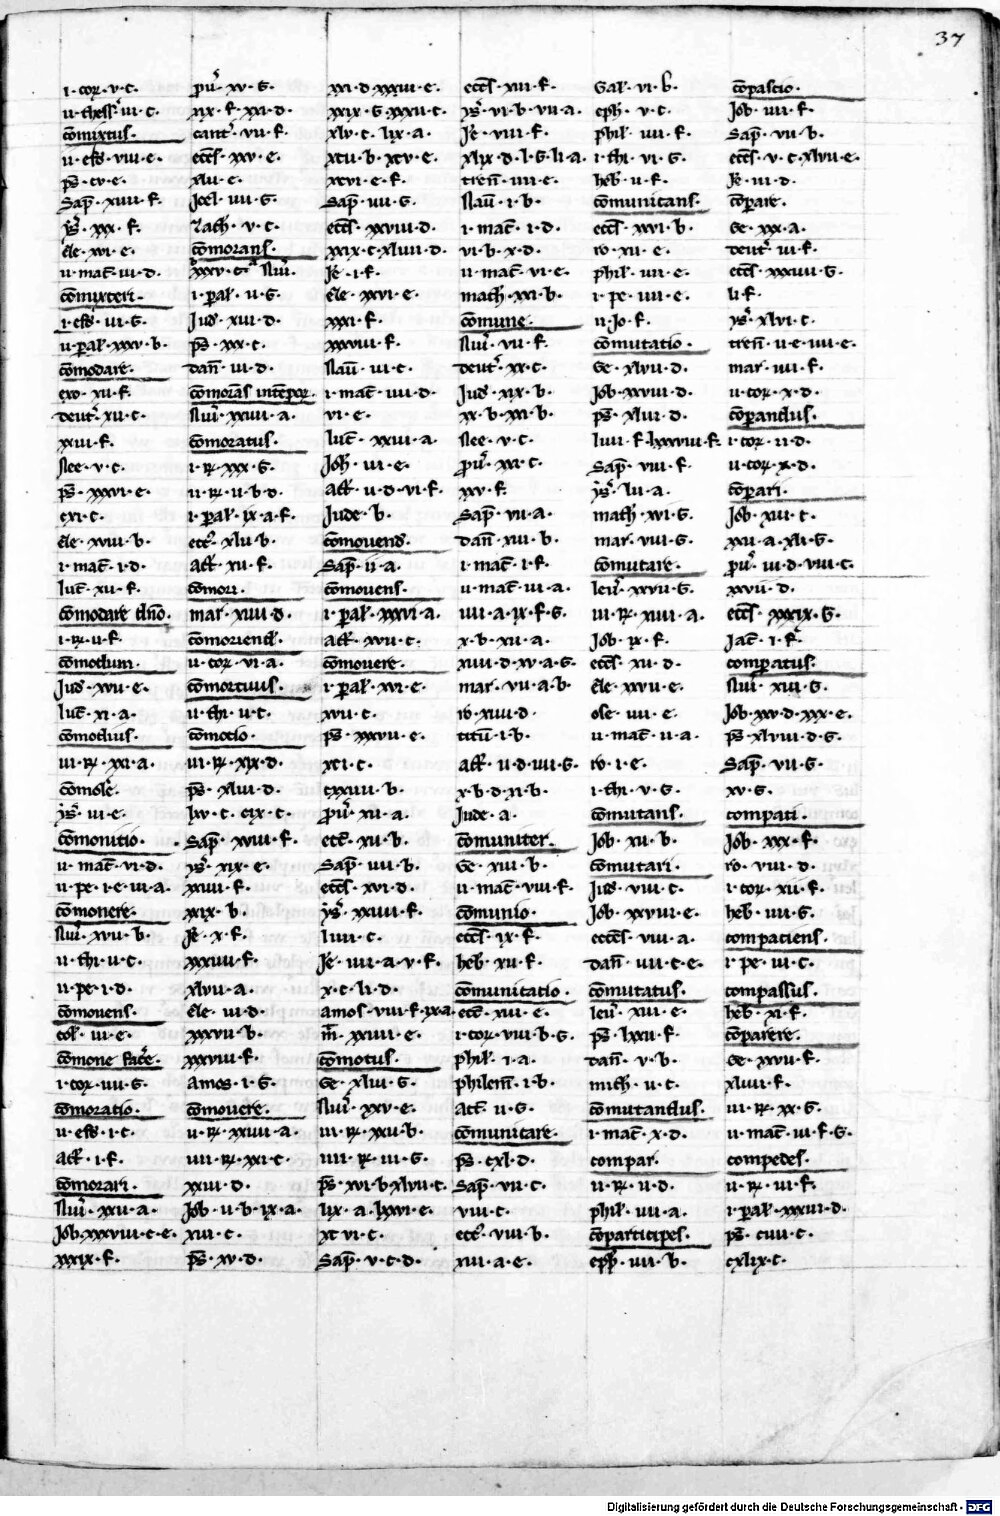 37
i · cor · v · c ·
ii · thess · iii · c ·
comixtus ·
ii · esd · viii · e ·
ps · cv · e ·
Sap · xiii · f ·
ys · xxx · f ·
ele · xvi · e ·
ii · mac · iii · d ·
comixteri ·
i · esd · vi · g ·
ii · pal · xxxv · b ·
comodare ·
exo · xii · f ·
deut · xii · c ·
xxiii · f ·
Nee · v · c ·
ps · xxxvi · e ·
cxi · c ·
ele · xviii · b ·
i · mac · i · d ·
luc · xii · f ·
comodare dno ·
i · R · ii · f ·
comodum ·
Jud · xvii · e ·
luc · xi · a ·
comodius ·
iii · R · xxi · a ·
comole ·
ys · iii · e ·
comonitio ·
ii · mac · vi · d ·
ii · pe · i · e · iii · a ·
comonere ·
Nu · xvii · b ·
ii · thi · ii · c ·
ii · pe · i · d ·
comonens ·
col · iii · e ·
comone face ·
i · cor · iiii · g ·
comoratio ·
ii · esd · i · c ·
act · i · f ·
comorari ·
Nu · xxii · a ·
Job · xxxviii · c · e ·
xxxix · f ·
pu · xv · g ·
xix · f · xxi · d ·
cant · vii · f ·
eccs · xxv · e ·
xlii · e ·
Joel · iii · g ·
Zach · v · c ·
comorans ·
xxxv · c · a Nu ·
i · pal · ii · g ·
Jud · xiii · d ·
ps · xxx · c ·
dan · iii · d ·
comoras intepor ·
Nu · xxiii · a ·
comoratus ·
i · R · xxx · g ·
ii · R · ii · b · d ·
i · pal · ix · a · f ·
ecc · xlii · b ·
act · xii · f ·
comori ·
mar · xiiii · d ·
comoriend ·
ii · cor · vi · a ·
comortuus ·
ii · thi · ii · c ·
comotio ·
iii · R · xix · d ·
ps · xliii · d ·
lxv · c · cix · c ·
Sap · xviii · f ·
ys · xix · e ·
xxiiii · f ·
xxix · b ·
Je · x · f ·
xxxiiii · f ·
xlvii · a ·
ele · iii · d ·
xxxvii · b ·
xxxviii · f ·
amos · i · g ·
comouere ·
ii · R · xxiiii · a ·
iiii · R · xxi · c ·
xxiii · d ·
Job · ii · b · ix · a ·
xiii · c ·
ps · xv · d ·
xxi · d · xxxiii · e ·
xxix · g · xxxii · c ·
xlv · c · lix · a ·
xcii · b · xcv · e ·
xcvi · e · f ·
Sap · iiii · g ·
eccs · xxviii · d ·
xxix · c · xliiii · d ·
Je · i · f ·
ele · xxvi · e ·
xxxi · f ·
xxxviii · f ·
Nau · iii · c ·
i · mac · iiii · d ·
vi · e ·
luc · xxiii · a ·
Joh · iii · e ·
act · ii · d · vi · f ·
Jude · b ·
comouend ·
Sap · ii · a ·
comouens ·
i · pal · xxxvi · a ·
act · xvii · c ·
comouere ·
i · pal · xvi · e ·
xvii · c ·
ps · xxxvii · e ·
xci · c ·
cxxiii · b ·
pu · xii · a ·
ecc · xii · b ·
Sap · iiii · b ·
eccs · xvi · d ·
ys · xxiiii · f ·
liiii · c ·
Je · iiii · a · v · f ·
x · c · li · d ·
amos · viii · f · ix · a ·
m · xxiiii · e ·
comotus ·
Ge · xliii · g ·
Nu · xxv · e ·
iii · R · xxii · b ·
iiii · R · iii · g ·
ps · xvi · b · xlvii · c ·
lix · a · lxxvi · e ·
xc vi · c ·
Sap · v · c · d ·
eccs · xiii · f ·
ys · vi · b · vii · a ·
Je · viii · f ·
xlix · d · l · g · li · a ·
tren · iiii · e ·
Nau · i · b ·
i · mac · i · d ·
vi · b · x · d ·
ii · mac · vi · e ·
math · xxi · b ·
comune ·
Nu · vii · f ·
deut · xx · c ·
Jud · xix · b ·
xx · b · xxi · b ·
Nee · v · c ·
pu · xxi · c ·
xxv · f ·
Sap · vii · a ·
dan · xiii · b ·
i · mac · i · f ·
ii · mac · iii · a ·
iiii · a · ix · f · g ·
x · b · xii · a ·
xiiii · d · xv · a · g ·
mar · vii · a · b ·
ro · xiiii · d ·
titu · i · b ·
act · ii · d · iiii · g ·
x · b · d · xi · b ·
Jude · a ·
comuniter ·
Ge · xiii · b ·
ii · mac · viii · f ·
comunio ·
eccs · ix · f ·
heb · xii · f ·
comunicatio ·
ecc · xiii · e ·
i · cor · viii · b · g ·
phil · i · a ·
philem · i · b ·
act · ii · g ·
comunicare ·
ps · cxl · d ·
Sap · vii · c ·
viii · c ·
ecc · viii · b ·
xiii · a · e ·
Gal · vi · b ·
eph · v · c ·
phil · iiii · f ·
i · thi · vi · g ·
heb · ii · f ·
comunicans ·
eccs · xxvi · b ·
ro · xii · e ·
phil · iiii · e ·
i · pe · iiii · e ·
ii · Jo · f ·
comutatio ·
Ge · xlvii · d ·
Job · xxviii · d ·
ps · xliii · d ·
liiii · f · lxxxviii · f ·
Sap · viii · f ·
ys · lii · a ·
math · xvi · g ·
mar · viii · g ·
comutare ·
leu · xxvii · g ·
iii · R · xiiii · a ·
Job · ix · f ·
eccs · xii · d ·
ele · xxvii · e ·
ose · iiii · e ·
ii · mac · ii · a ·
ro · i · e ·
i · thi · v · g ·
comutans ·
Job · xii · b ·
comutari ·
Jud · viii · c ·
Job · xxviii · e ·
eccs · viii · a ·
dan · iiii · c · e ·
comutatus ·
leu · xiii · e ·
ps · lxxii · f ·
dan · v · b ·
mich · ii · c ·
comutandus ·
i · mac · x · d ·
compar ·
ii · R · ii · d ·
phil · iiii · a ·
comparticipes ·
eph · iii · b ·
compascio ·
Job · iiii · f ·
Sap · vii · b ·
eccs · v · c · xlvii · e ·
Je · iii · d ·
compare ·
Ge · xx · a ·
deut · iii · f ·
eccs · xxxiii · g ·
li · f ·
ys · xlvi · c ·
tren · ii · e · iiii · e ·
mar · iiii · f ·
ii · cor · x · d ·
comparandus ·
i · cor · ii · d ·
ii · cor · x · d ·
comparari ·
Job · xiii · c ·
xxi · a · xli · g ·
pu · iii · d · viii · c ·
xxvii · d ·
eccs · xxxix · g ·
Jac · i · f ·
comparatus ·
Nu · xiii · g ·
Job · xxv · d · xxx · e ·
ps · xlviii · d · g ·
Sap · vii · g ·
xv · g ·
compati ·
Job · xxx · f ·
ro · viii · d ·
i · cor · xii · f ·
heb · iiii · g ·
compaciens ·
i · pe · iii · c ·
compassus ·
heb · xi · f ·
comparere ·
Ge · xxvii · f ·
xliiii · f ·
iii · R · xx · g ·
ii · mac · iii · f · g ·
compedes ·
ii · R · iii · f ·
i · pal · xxxvi · d ·
ps · ciiii · c ·
cxlix · c ·
Digitalisierung gefördert durch die Deutsche Forschungsgemeinschaft · DFG